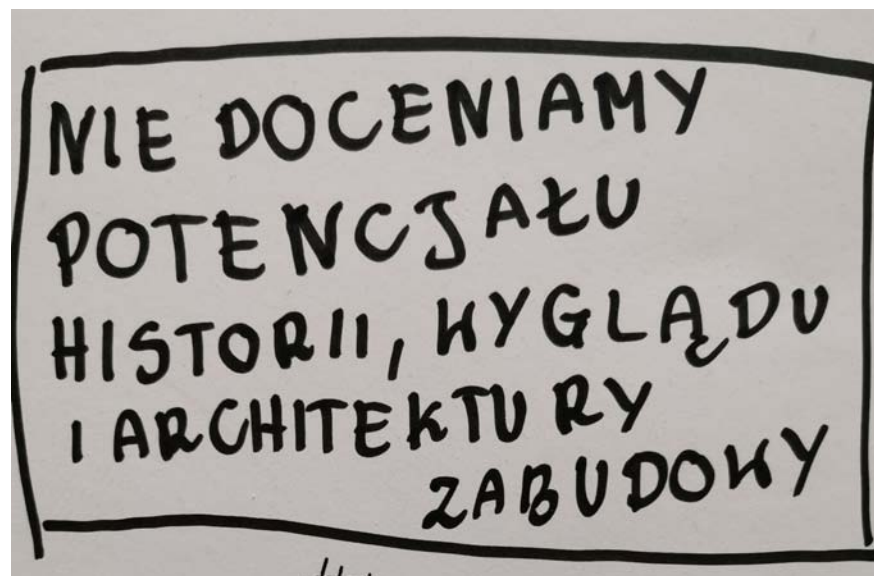 NIE DOCENIAMY
POTENCJAŁU
HISTORII, WYGLĄDU
I ARCHITEKTURY
ZABUDOWY